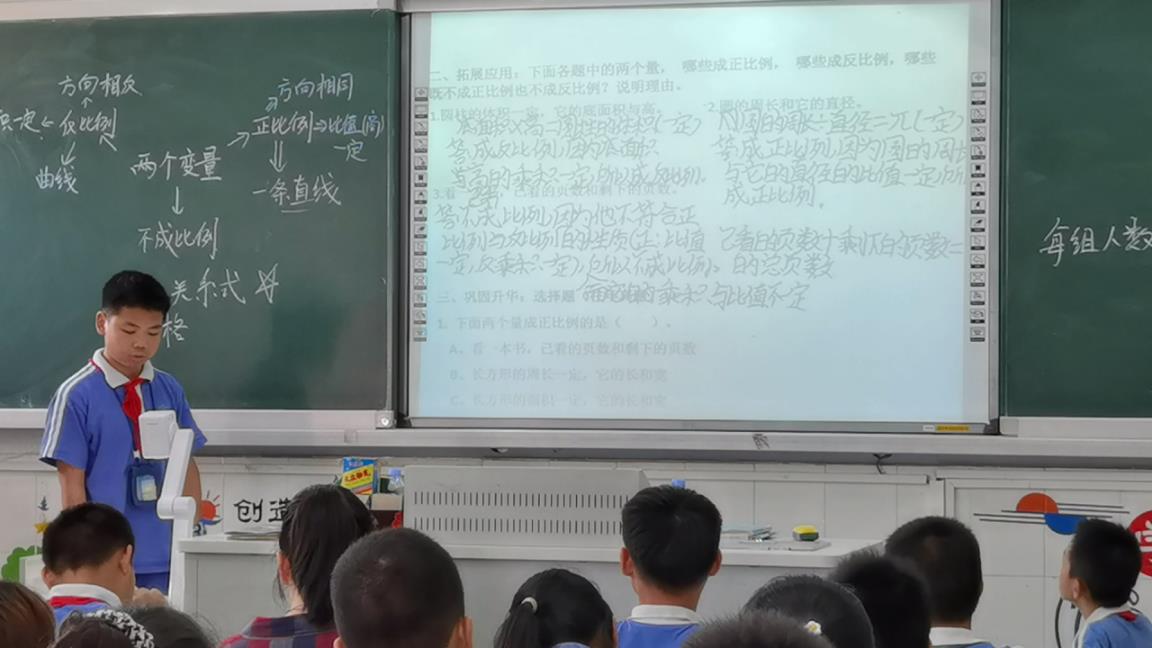 方向相反
反比例
曲线
方向相同
正比例⇒比值(商)
一定
一条直线
两个变量
不成比例
关系式
格
二、拓展应用：下面各题中的两个量， 哪些成正比例， 哪些成反比例，哪些
既不成正比例也不成反比例？说明理由。
1.圆柱的体积一定，它的底面积与高。
底面积×高=圆柱的体积(一定)
答:成反比例,因为底面积
与高的乘积一定,所以成反比例。
2.圆的周长和它的直径。
圆的周长÷直径=π(一定)
答:成正比例,因为圆的周长
与它的直径的比值一定,所以
成正比例。
已看的页数和剩下的页数。
答:不成比例,因为他不符合正
比例与反比例的性质(正:比值
一定,反:乘积一定),所以不成比例。
已看的页数+剩下的页数=
的总页数
乘积与比值不定
三、巩固升华：选择题
1. 下面两个量成正比例的是（ ）。
A、看一本书，已看的页数和剩下的页数
B、长方形的周长一定，它的长和宽
C、长方形的面积一定，它的长和宽
每组人数
创造